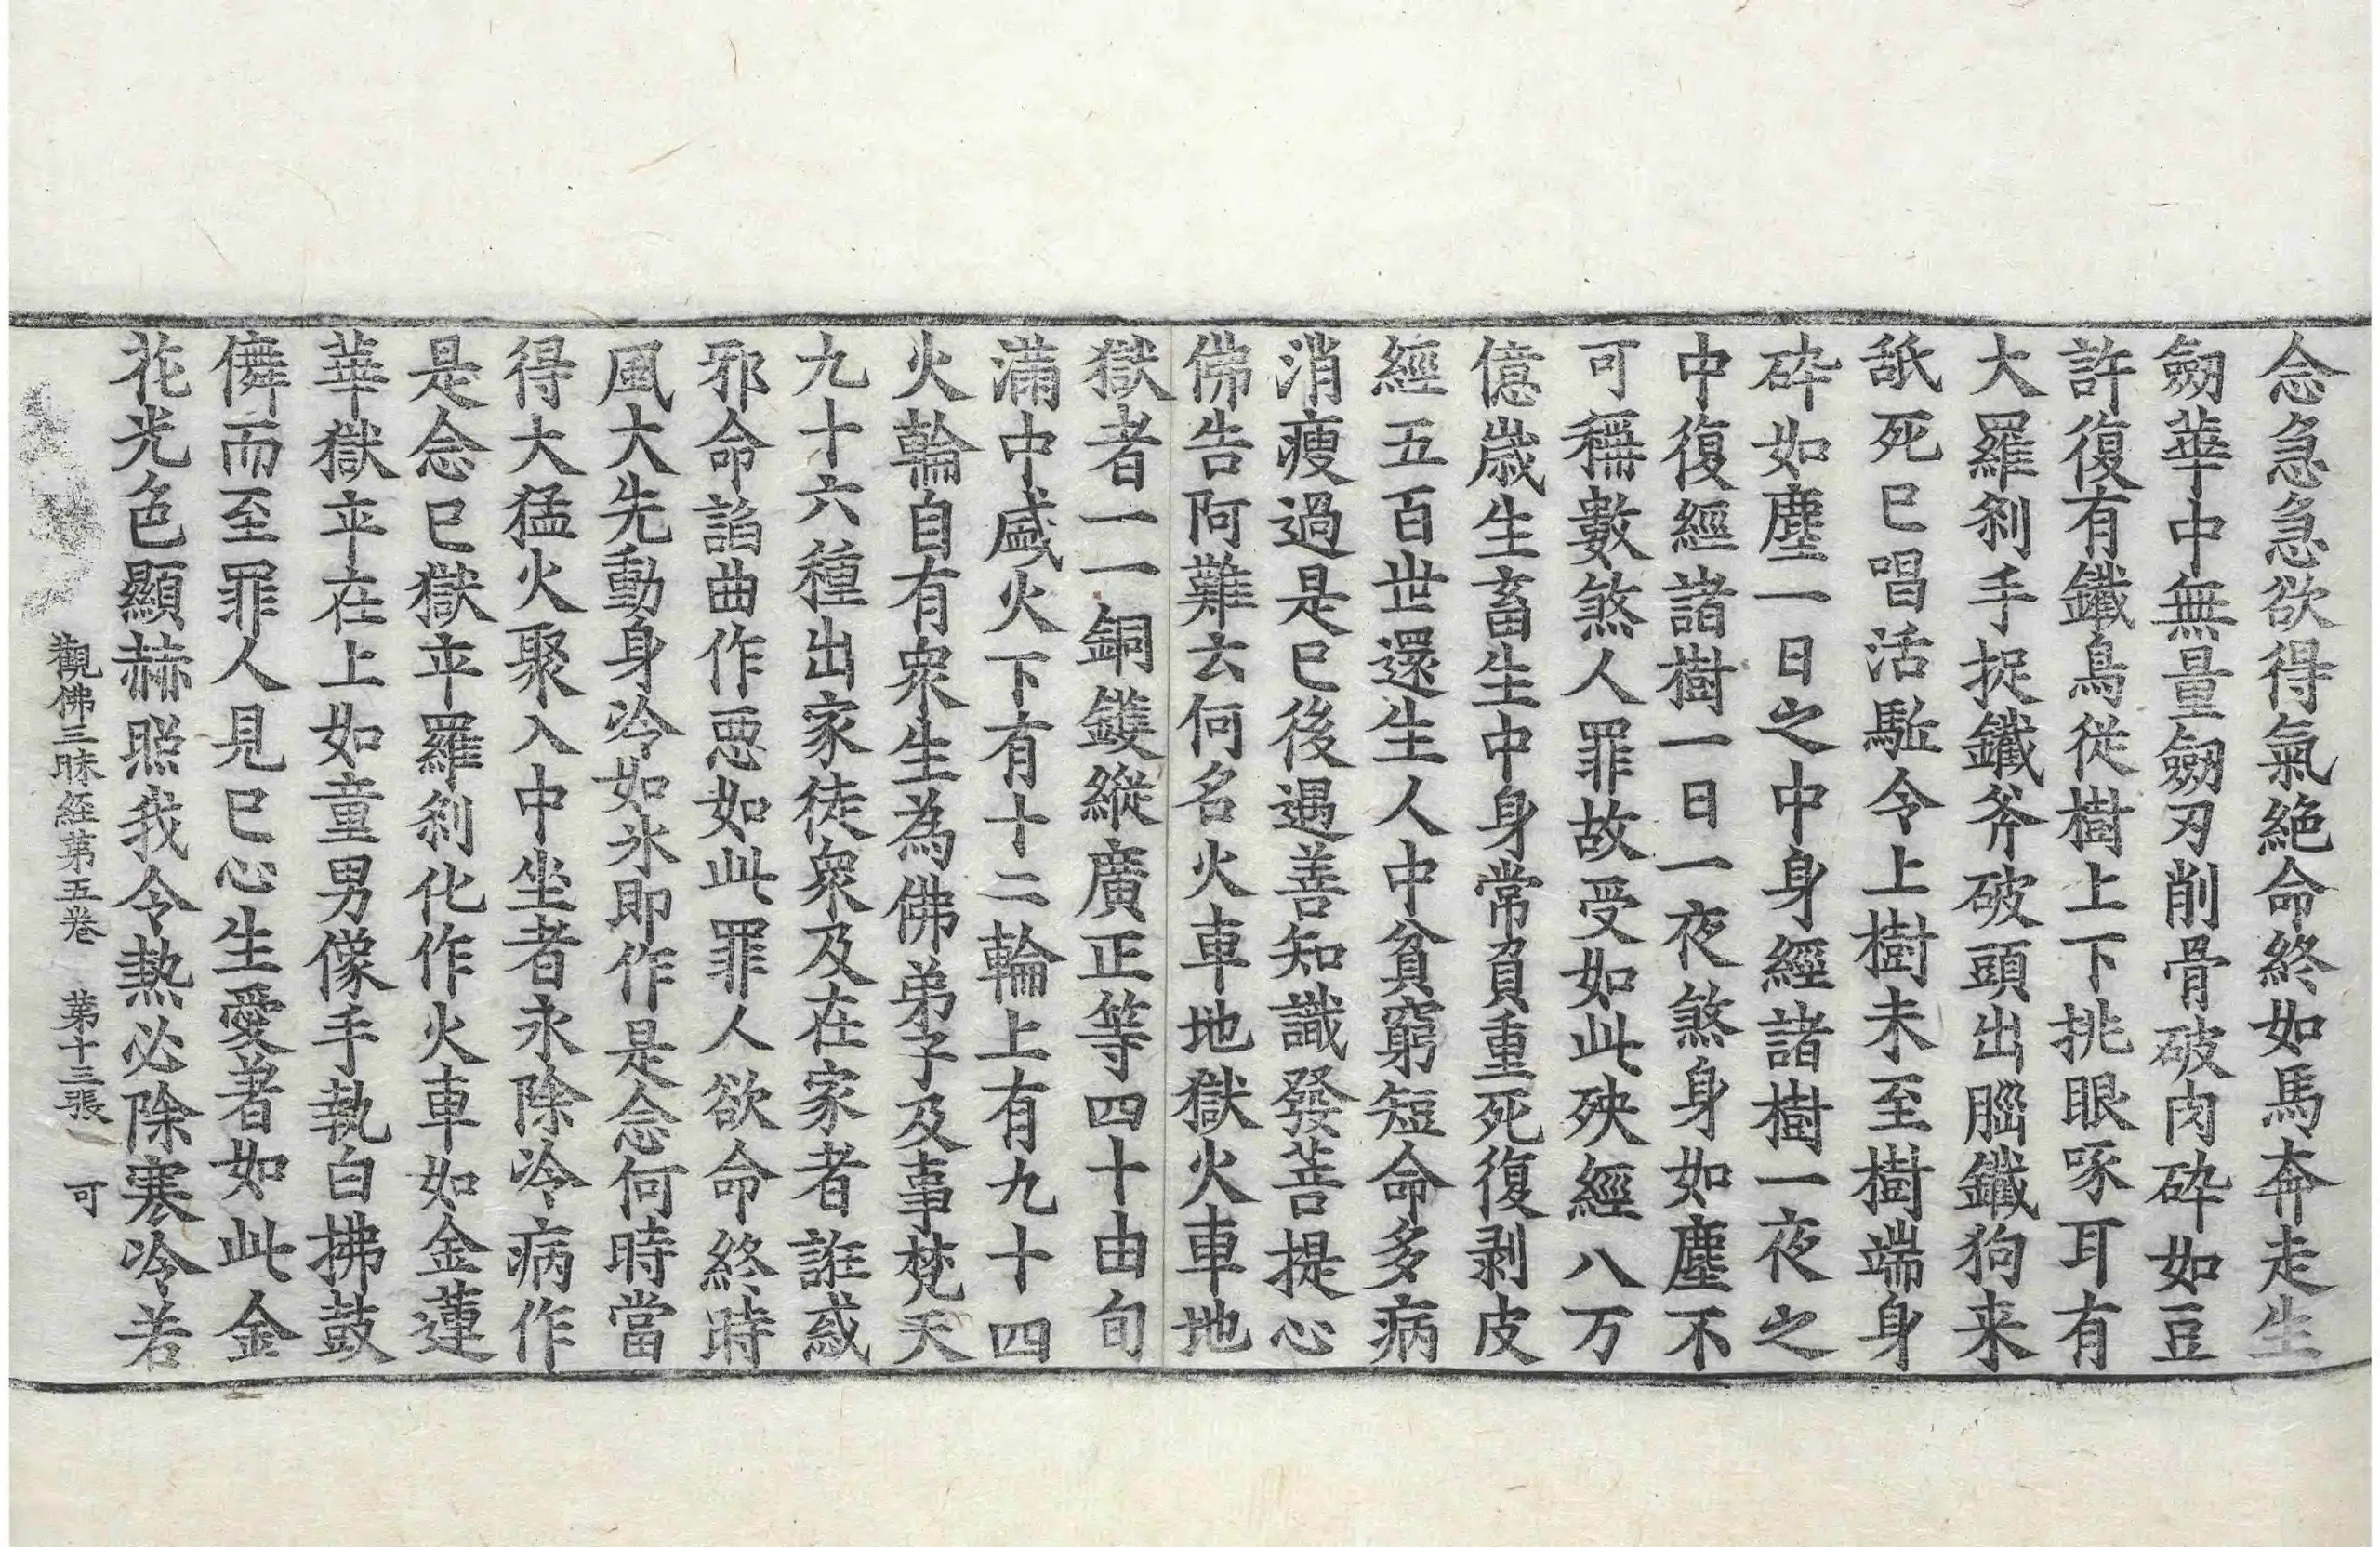 念急急欲得氣絶命終如馬奔走生
劒華中無量劒刃削骨破肉碎如豆
許復有鐵鳥從樹上下挑眼啄耳有
大羅剎手捉鐵斧破頭出腦鐵狗来
舐死已唱活駈令上樹未至樹端身
碎如塵一日之中身經諸樹一夜之
中復經諸樹一日一夜煞身如塵不
可稱數煞人罪故受如此殃經八万
億歲生畜生中身常負重死復剥皮
經五百世還生人中貧窮短命多病
消瘦過是已後遇善知識發菩提心
佛告阿難云何名火車地獄火車地
獄者一一銅鑊縱廣正等四十由旬
滿中盛火下有十二輪上有九十四
火輪自有衆生為佛弟子及事梵天
九十六種出家徒衆及在家者誑惑
邪命諂曲作惡如此罪人欲命終時
風大先動身冷如氷即作是念何時當
得大猛火聚入中坐者永除冷病作
是念已獄卒羅剎化作火車如金蓮
華獄卒在上如童男像手執白拂鼓
儛而至罪人見已心生愛著如此金
花光色顯赫照我令熱必除寒冷若
觀佛三昧經第五卷 第十三張 可